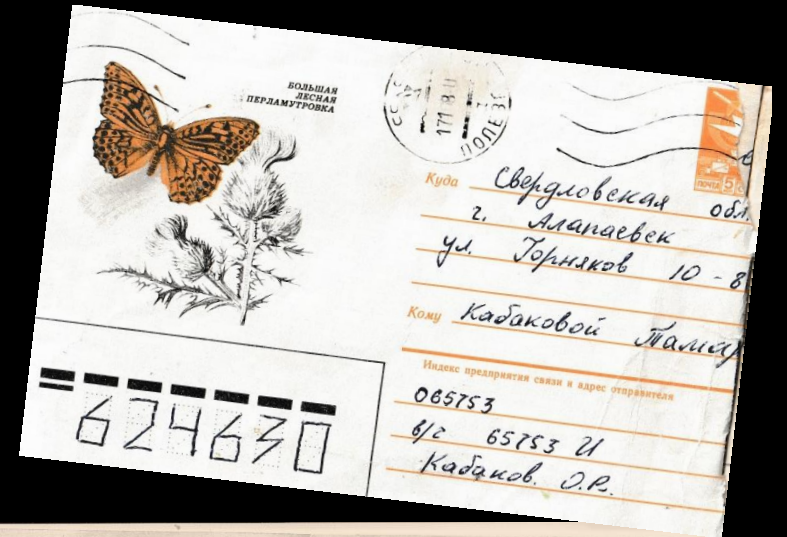 БОЛЬШАЯ
ЛЕСНАЯ
ПЕРЛАМУТРОВКА
ПОЧТА 5
Куда Свердловская обл.
г. Алапаевск
ул. Горняков 10-8
Кому Кабаковой Тамар
Индекс предприятия связи и адрес отправителя
065753
в/г 65753 И
Кабаков. О.Р.
624630